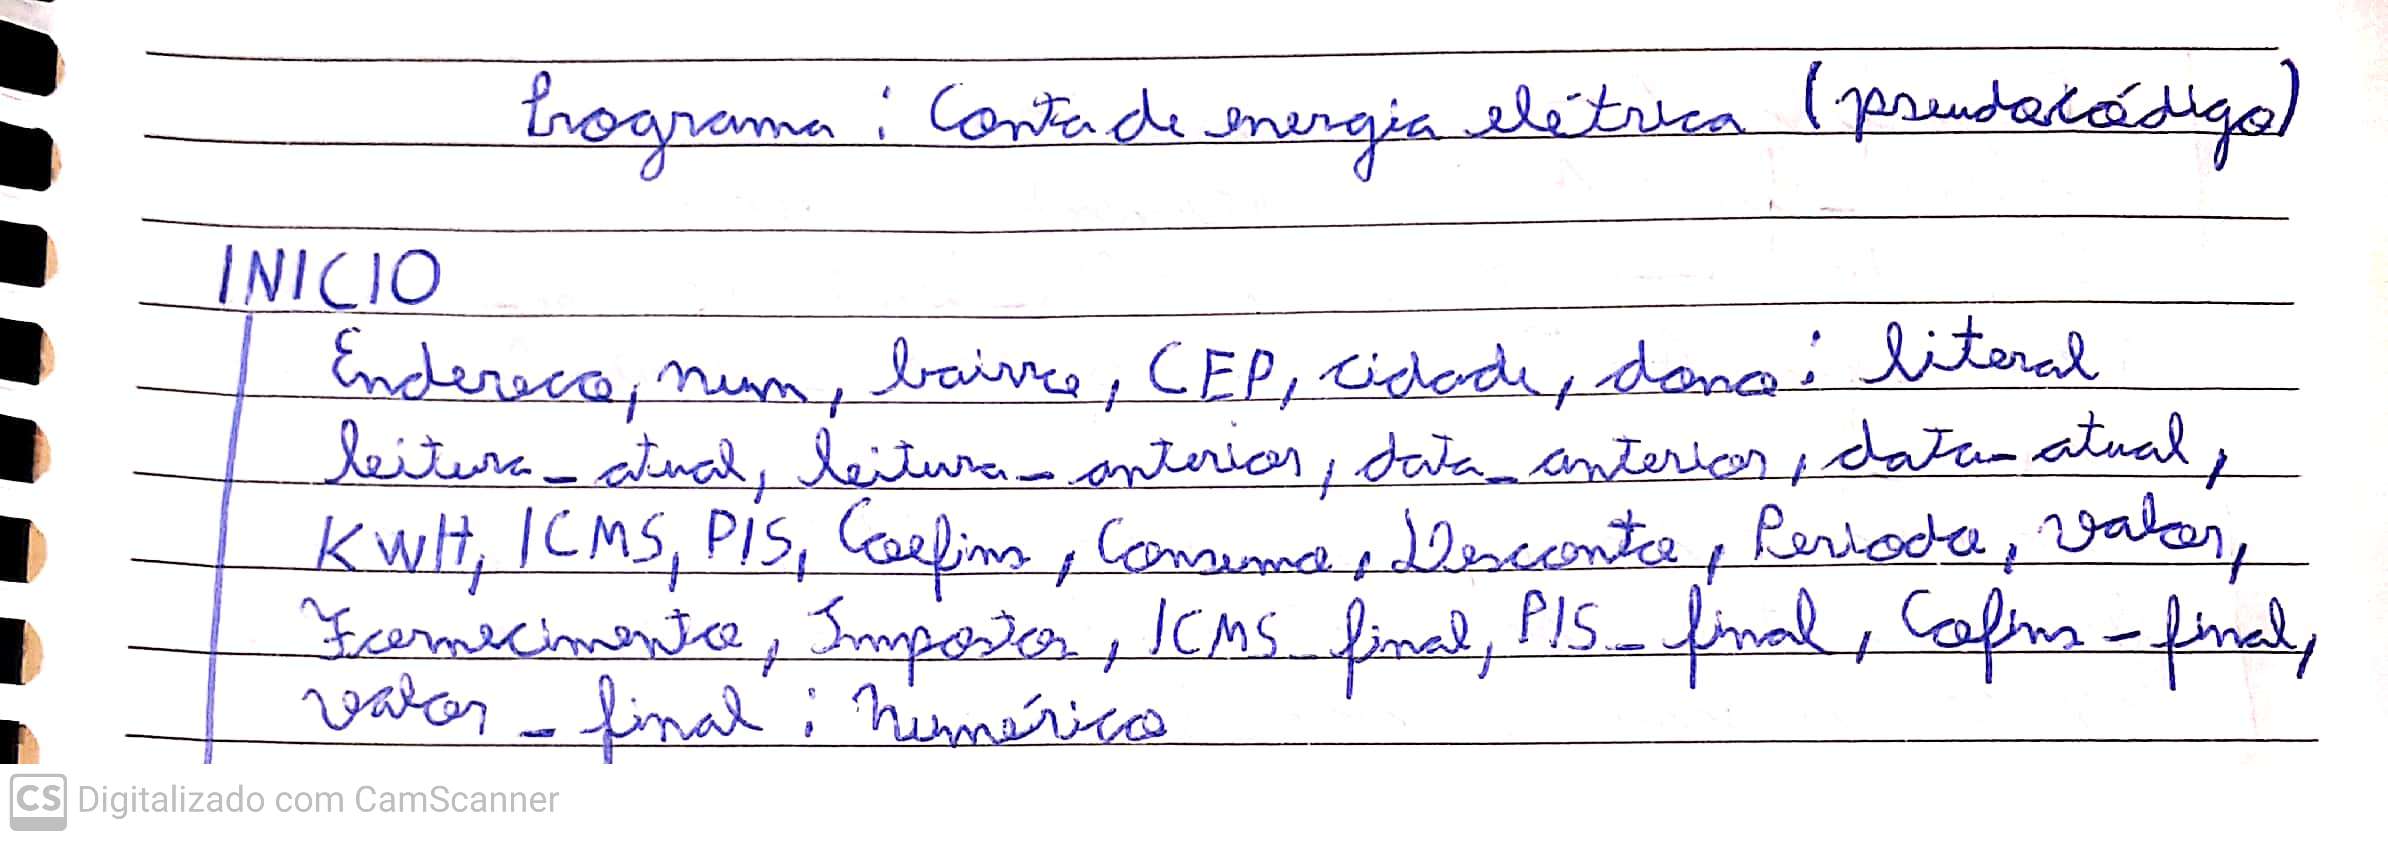 Programa: Conta de energia elétrica (pseudocódigo)
INICIO
Endereco, num, bairro, CEP, cidade, dono: literal
leitura_atual, leitura_anterior, data_anterior, data_atual,
KWH, ICMS, PIS, Coefins, Consumo, Desconto, Periodo, valor,
Fornecimento, Impostos, ICMS_final, PIS_final, Cofins_final,
valor_final: Numérico
CS Digitalizado com CamScanner